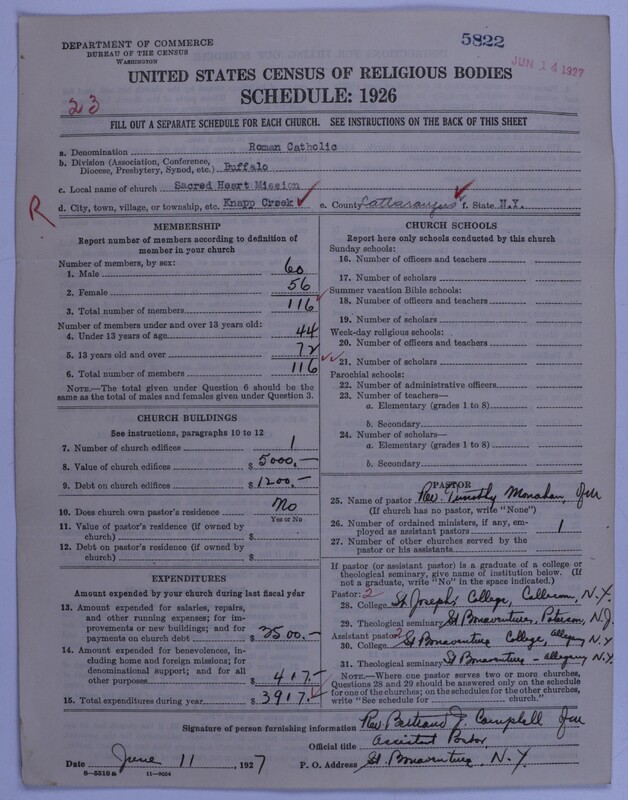 DEPARTMENT OF COMMERCE
BUREAU OF THE CENSUS
WASHINGTON
5822
JUN 14 1927
UNITED STATES CENSUS OF RELIGIOUS BODIES
SCHEDULE: 1926
23
FILL OUT A SEPARATE SCHEDULE FOR EACH CHURCH. SEE INSTRUCTIONS ON THE BACK OF THIS SHEET
a. Denomination Roman Catholic
b. Division (Association, Conference, Diocese, Presbytery, Synod, etc.) Buffalo
c. Local name of church Sacred Heart Mission
R
d. City, town, village, or township, etc. Knapp Creek e. County Cattaraugus f. State N.Y.
MEMBERSHIP
Report number of members according to definition of
member in your church
Number of members, by sex:
1. Male 60
2. Female 56
3. Total number of members 116
Number of members under and over 13 years old:
4. Under 13 years of age 44
5. 13 years old and over 72
6. Total number of members 116
NOTE.—The total given under Question 6 should be
same as the total of males and females given under Question 3.
CHURCH BUILDINGS
See instructions, paragraphs 10 to 12
7. Number of church edifices 1
8. Value of church edifices $ 5000.—
9. Debt on church edifices $ 1200.—
10. Does church own pastor's residence No
Yes or No
11. Value of pastor's residence (if owned by
church) $
12. Debt on pastor's residence (if owned by
church) $
EXPENDITURES
Amount expended by your church during last fiscal year
13. Amount expended for salaries, repairs,
and other running expenses; for im-
provements or new buildings; and for
payments on church debt $ 3500.—
14. Amount expended for benevolences,
including home and foreign missions; for
denominational support; and for all
other purposes $ 417.—
15. Total expenditures during year $ 3917.—
CHURCH SCHOOLS
Report here only schools conducted by this church
Sunday schools:
16. Number of officers and teachers
17. Number of scholars
Summer vacation Bible schools:
18. Number of officers and teachers
19. Number of scholars
Week-day religious schools:
20. Number of officers and teachers
21. Number of scholars
Parochial schools:
22. Number of administrative officers
23. Number of teachers—
a. Elementary (grades 1 to 8)
b. Secondary
24. Number of scholars—
a. Elementary (grades 1 to 8)
b. Secondary
PASTOR
25. Name of pastor Rev. Timothy Monahan,
(If church has no pastor, write "None")
26. Number of ordained ministers, if any, em-
ployed as assistant pastors 1
27. Number of other churches served by the
pastor or his assistants
If pastor (or assistant pastor) is a graduate of a college or
theological seminary, give name of institution below. (If
not a graduate, write "No" in the space indicated.)
Pastor: 2
28. College St Josephs College, Callicoon, N.Y.
29. Theological seminary St Bonaventures, Paterson, N.J.
Assistant pastor: 2
30. College St Bonaventure College, Allegany N.Y
31. Theological seminary St Bonaventure - Allegany N.Y.
NOTE.—Where one pastor serves two or more churches,
Questions 28 and 29 should be answered only on the schedule
for one of the churches; on the schedules for the other churches,
write "See schedule for church."
Signature of person furnishing information Rev. Bertrand J. Campbell
Official title Assistant Pastor
Date June 11, 1927 P. O. Address St. Bonaventure, N.Y.
8—5510a 11—9054